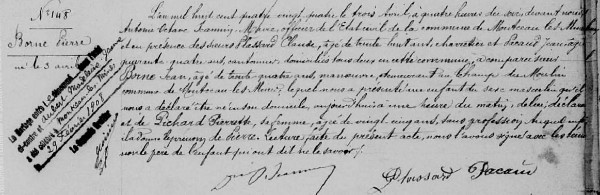 N° 148
Borne Pierre
né le 3 avril
Le mariage entre
et
a été célébré
29 février 1908
L'an mil huit cent quatre vingt quatre le trois Avril, à quatre heures du soir, devant nous
Antoine Octave Jeannin, Maire, officier de l'Etat civil de la commune de Montceau les Mines
et en présence des sieurs Plossard Claude, âgé de trente huit ans, charretier et Jean, âgé
quarante quatre ans, cantonnier domiciliés tous deux en cette commune, a comparu sieur
Borne Jean, âgé de trente quatre ans, manœuvre, demeurant au Champ du Moulin
commune de Montceau les Mines; lequel nous a présenté un enfant du sexe masculin qu'il
nous a déclaré être né en son domicile, aujourd'hui à une heure du matin, de lui, déclarant
et de Pichard Pierrette, sa femme, âgée de vingt cinq ans, sans profession, Auquel enfant
il a donné le prénom de Pierre. Lecture faite du présent acte, nous l'avons signé avec les témoins
non le père de l'enfant qui a dit ne le savoir.
Jeannin
Plossard